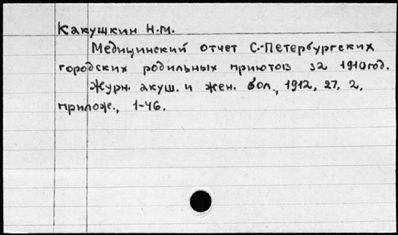 Какушкин Н.М.
Медицинский отчет С.-Петербургских
городских родильных приютов за 1910 год.
Журн. акуш. и жен. бол., 1912, 27, 2,
прилож., 1-46.